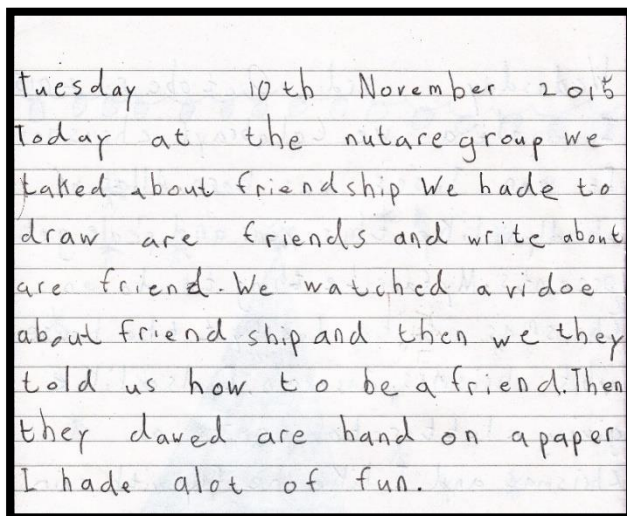 Tuesday 10th November 2015
Today at the nutare group we
talked about friendship We hade to
draw are friends and write about
are friend. We watched a vidoe
about friend ship and then we they
told us how to be a friend. Then
they dawed are hand on a paper
I hade alot of fun.